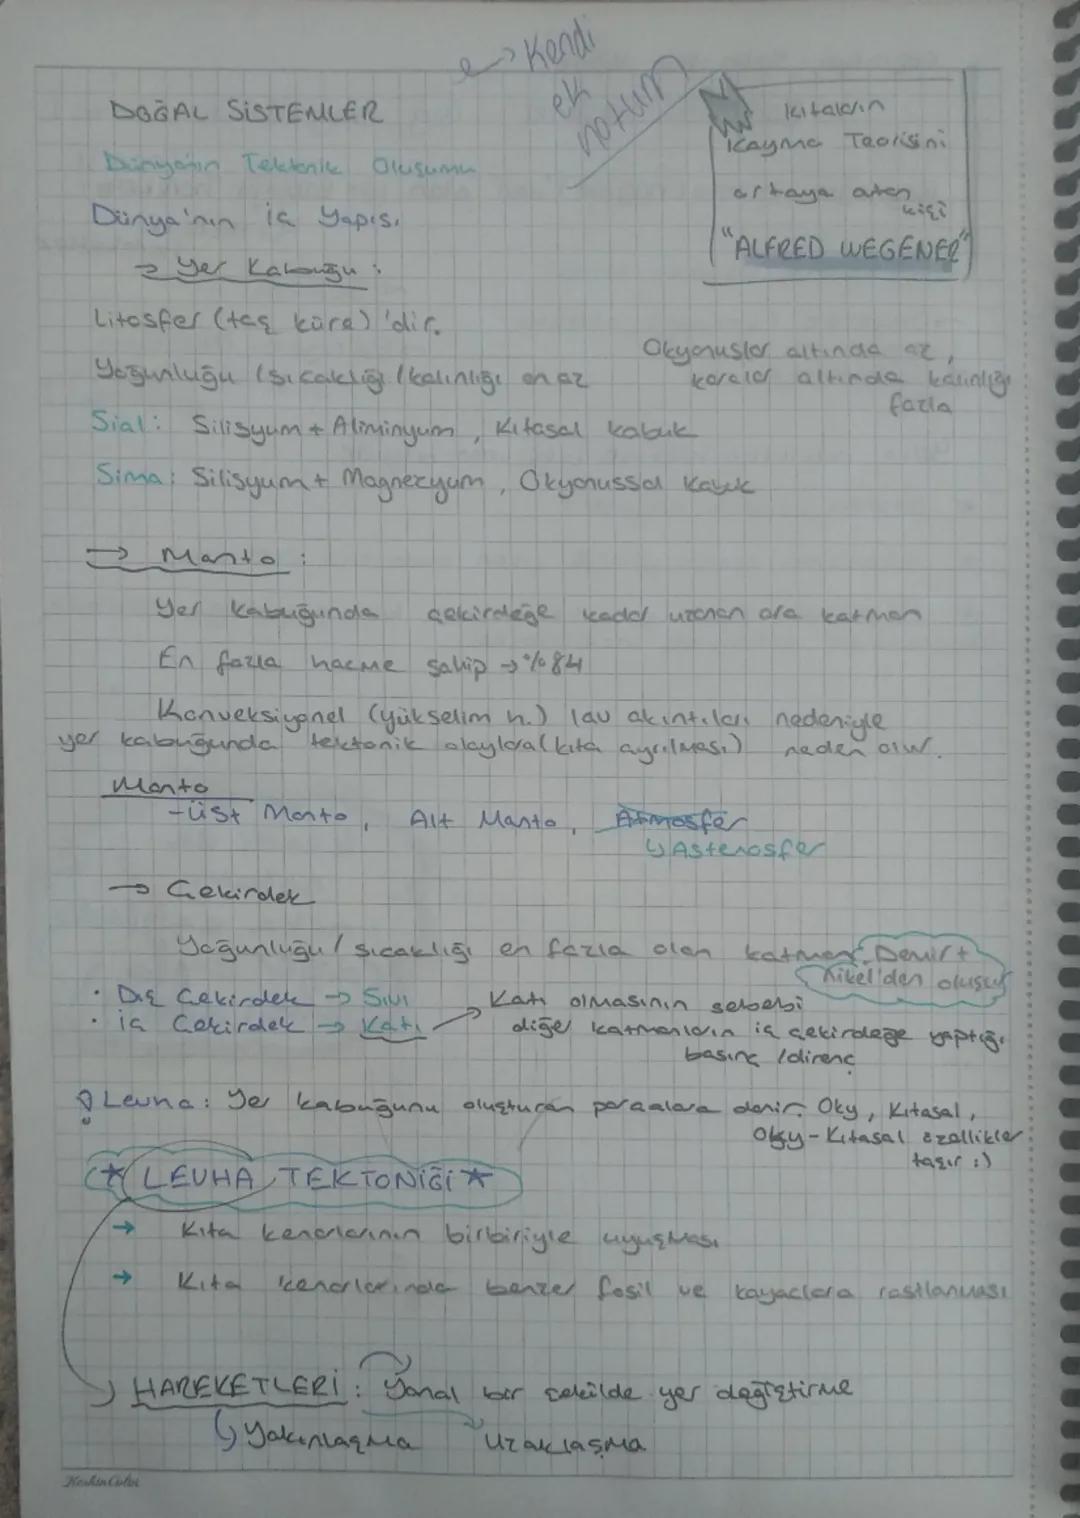 → Kendi
ek
notum
DOĞAL SİSTEMLER
Dünya'nın Tektonik Oluşumu
Dünya'nın iç Yapısı
kıtaların
Kayma Teorisini
ortaya atan
kişi
"ALFRED WEGENER"
→ Yer Kabuğu :
Litosfer (taş küre)'dir.
Yoğunluğu / sıcaklığı / kalınlığı en az
Okyanuslar altında az,
karalar altında kalınlığı
fazla
Sial: Silisyum + Aliminyum, Kıtasal kabuk
Sima: Silisyum + Magnezyum, Okyanussal Kabuk
→ Manto :
Yer kabuğunda çekirdeğe kadar uzanan ara katman
En fazla hacme sahip → %84
Konveksiyonel (yükselim h.) lav akıntıları nedeniyle
yer kabuğunda tektonik olaylara (kıta ayrılması) neden olur.
Manto
-üst Manto, Alt Manto, Atmosfer
↳ Astenosfer
→ Çekirdek
Yoğunluğu / sıcaklığı en fazla olan katman. Demir +
Nikel'den oluşur
• Dış Çekirdek → Sıvı
• iç Çekirdek → Katı → Katı olmasının sebebi
diğer katmanların iç çekirdeğe yaptığı
basınç / direnç
! Levha: Yer kabuğunu oluşturan parçalara denir. Oky, Kıtasal,
Oky-Kıtasal özellikler
taşır :)
★ LEVHA TEKTONİĞİ ★
→ Kıta kenarlarının birbiriyle uyuşması
→ Kıta kenarlarında benzer fosil ve kayaçlara rastlanması
HAREKETLERİ : Yanal bir şekilde yer değiştirme
↳ Yakınlaşma Uzaklaşma
KeskinColor